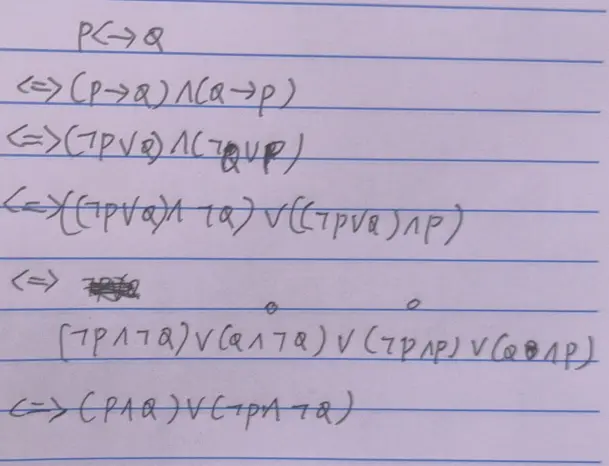 P<->Q
<=>(P→Q)∧(Q→P)
<=>(¬P∨Q)∧(¬Q∨P)
<=>((¬P∨Q)∧¬Q)∨((¬P∨Q)∧P)
<=>
0 0
(¬P∧¬Q)∨(Q∧¬Q)∨(¬P∧P)∨(Q∧P)
<=>(P∧Q)∨(¬P∧¬Q)